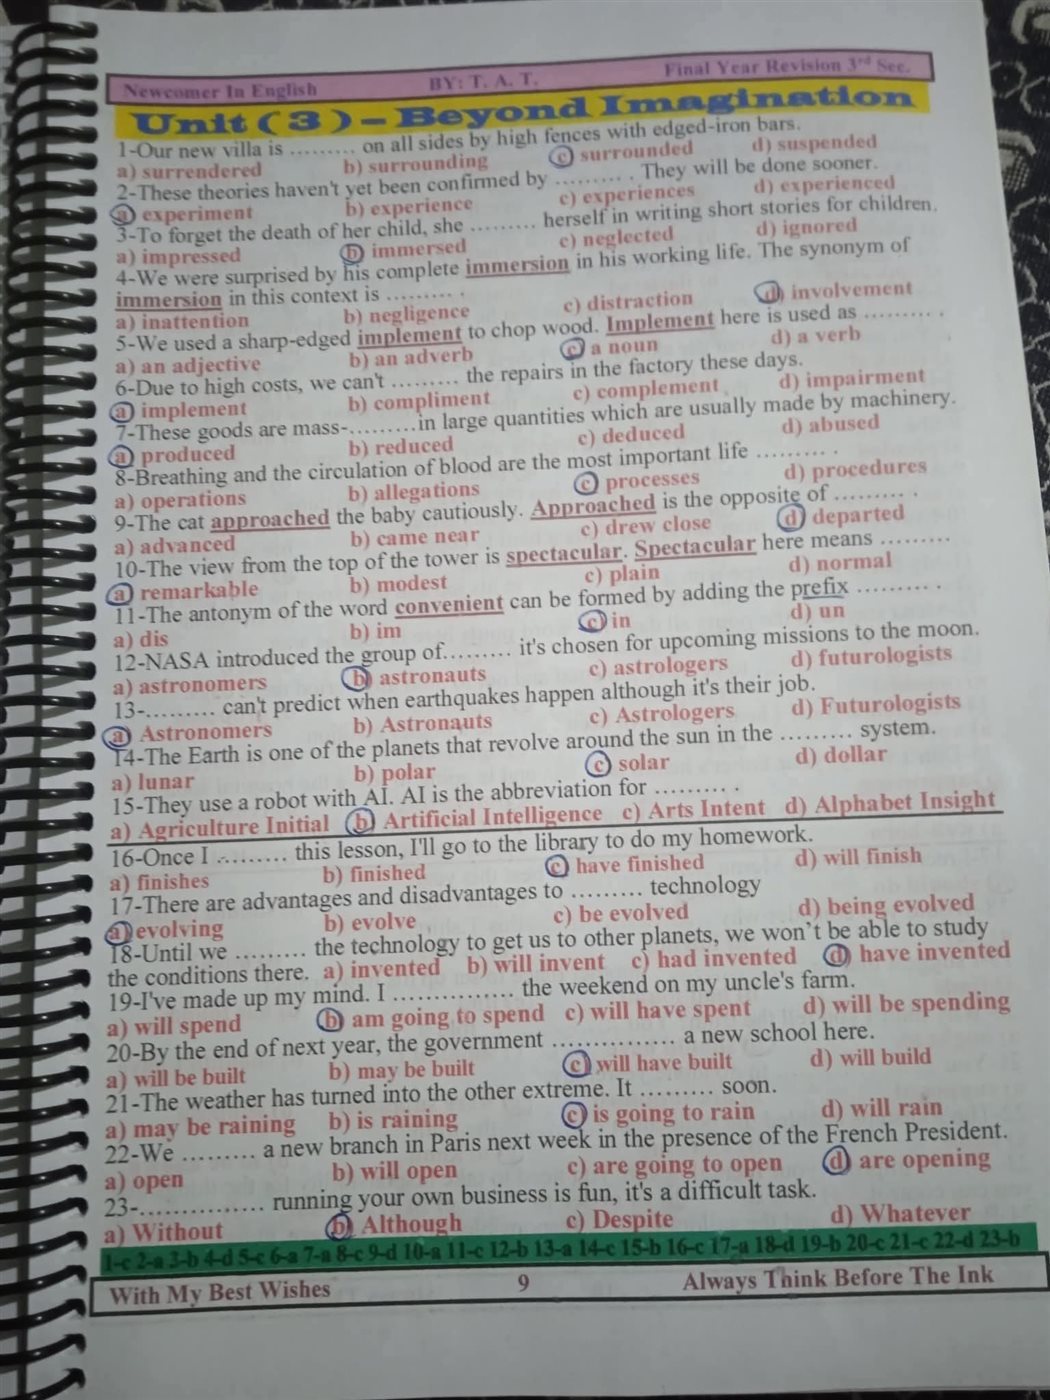 Newcomer In English BY: T. A. T. Final Year Revision 3rd Sec.
Unit ( 3 ) – Beyond Imagination
1-Our new villa is ......... on all sides by high fences with edged-iron bars.
a) surrendered b) surrounding c) surrounded d) suspended
2-These theories haven't yet been confirmed by ......... . They will be done sooner.
a) experiment b) experience c) experiences d) experienced
3-To forget the death of her child, she ......... herself in writing short stories for children.
a) impressed b) immersed c) neglected d) ignored
4-We were surprised by his complete immersion in his working life. The synonym of
immersion in this context is ......... .
a) inattention b) negligence c) distraction d) involvement
5-We used a sharp-edged implement to chop wood. Implement here is used as ......... .
a) an adjective b) an adverb c) a noun d) a verb
6-Due to high costs, we can't ......... the repairs in the factory these days.
a) implement b) compliment c) complement d) impairment
7-These goods are mass-.........in large quantities which are usually made by machinery.
a) produced b) reduced c) deduced d) abused
8-Breathing and the circulation of blood are the most important life ......... .
a) operations b) allegations c) processes d) procedures
9-The cat approached the baby cautiously. Approached is the opposite of ......... .
a) advanced b) came near c) drew close d) departed
10-The view from the top of the tower is spectacular. Spectacular here means .........
a) remarkable b) modest c) plain d) normal
11-The antonym of the word convenient can be formed by adding the prefix ......... .
a) dis b) im c) in d) un
12-NASA introduced the group of......... it's chosen for upcoming missions to the moon.
a) astronomers b) astronauts c) astrologers d) futurologists
13-......... can't predict when earthquakes happen although it's their job.
a) Astronomers b) Astronauts c) Astrologers d) Futurologists
14-The Earth is one of the planets that revolve around the sun in the ......... system.
a) lunar b) polar c) solar d) dollar
15-They use a robot with AI. AI is the abbreviation for ......... .
a) Agriculture Initial b) Artificial Intelligence c) Arts Intent d) Alphabet Insight
16-Once I ......... this lesson, I'll go to the library to do my homework.
a) finishes b) finished c) have finished d) will finish
17-There are advantages and disadvantages to ......... technology
a) evolving b) evolve c) be evolved d) being evolved
18-Until we ......... the technology to get us to other planets, we won't be able to study
the conditions there. a) invented b) will invent c) had invented d) have invented
19-I've made up my mind. I ............... the weekend on my uncle's farm.
a) will spend b) am going to spend c) will have spent d) will be spending
20-By the end of next year, the government ............... a new school here.
a) will be built b) may be built c) will have built d) will build
21-The weather has turned into the other extreme. It ......... soon.
a) may be raining b) is raining c) is going to rain d) will rain
22-We ......... a new branch in Paris next week in the presence of the French President.
a) open b) will open c) are going to open d) are opening
23-............... running your own business is fun, it's a difficult task.
a) Without b) Although c) Despite d) Whatever
1-c 2-a 3-b 4-d 5-c 6-a 7-a 8-c 9-d 10-a 11-c 12-b 13-a 14-c 15-b 16-c 17-a 18-d 19-b 20-c 21-c 22-d 23-b
With My Best Wishes 9 Always Think Before The Ink